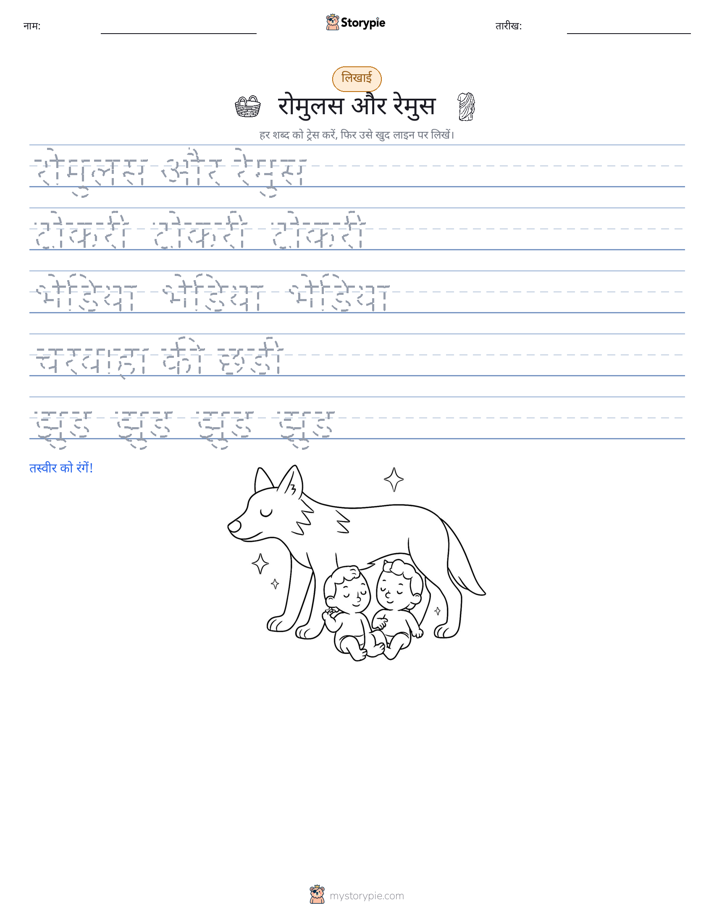 नाम:
Storypie
तारीख:
लिखाई
रोमुलस और रेमुस
हर शब्द को ट्रेस करें, फिर उसे खुद लाइन पर लिखें।
रोमुलस और रेमुस
टोकरी टोकरी टोकरी
भेडिया भेडिया भेडिया
चरवाहा की छडी
झुड झुड झुड झुड
तस्वीर को रंगें!
mystorypie.com